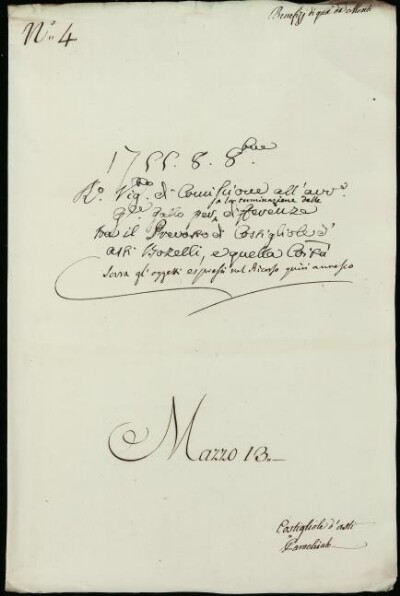 Benefizj di quà da Monti
N.° 4
1755. 8. 8bre
R.° Vig.to di Comissione all'avv.°
G.le Gallo per la terminazione delle differenze
tra il Prevosto di Costigliole d'
asti Bozelli, e quella Com.tà
Sovra gl'oggetti espressi nel Ricorso quivi annesso
Mazzo 13.
Costigliole d'asti
Parochiale